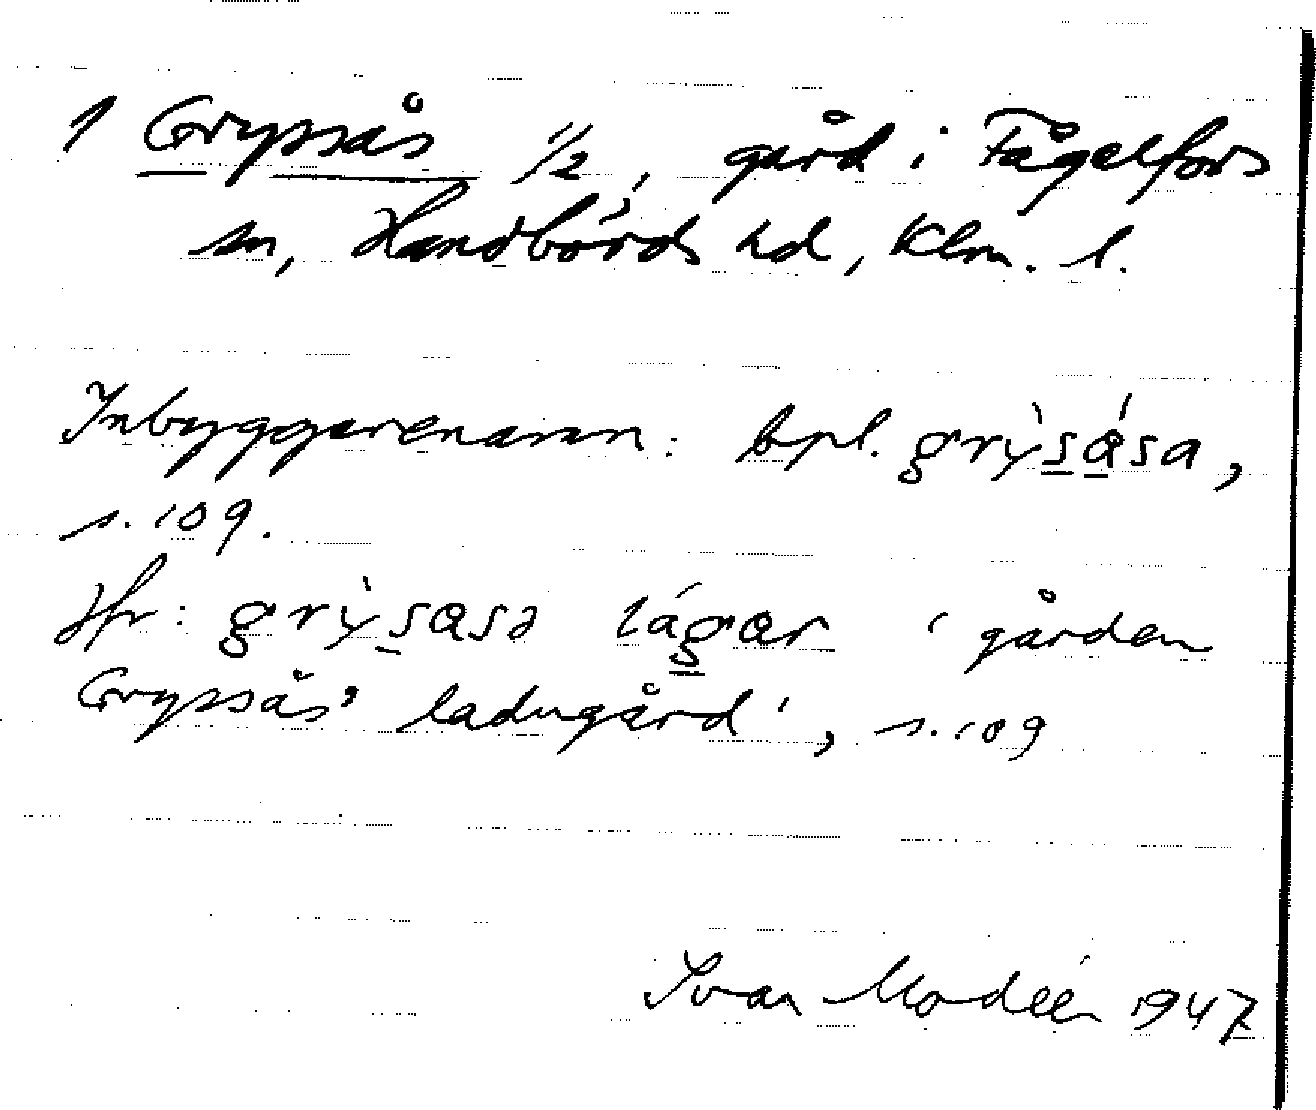 1 Gryssås 1/2, gård i Fågelfors
sn, Handbörds hd, Klm. l.
Inbyggarenamn: bpl. grỳsåsa,
s. 109.
Jfr: grỳsasə lágar 'gården
Gryssås' ladugård', s. 109
Ivan Modéer 1947